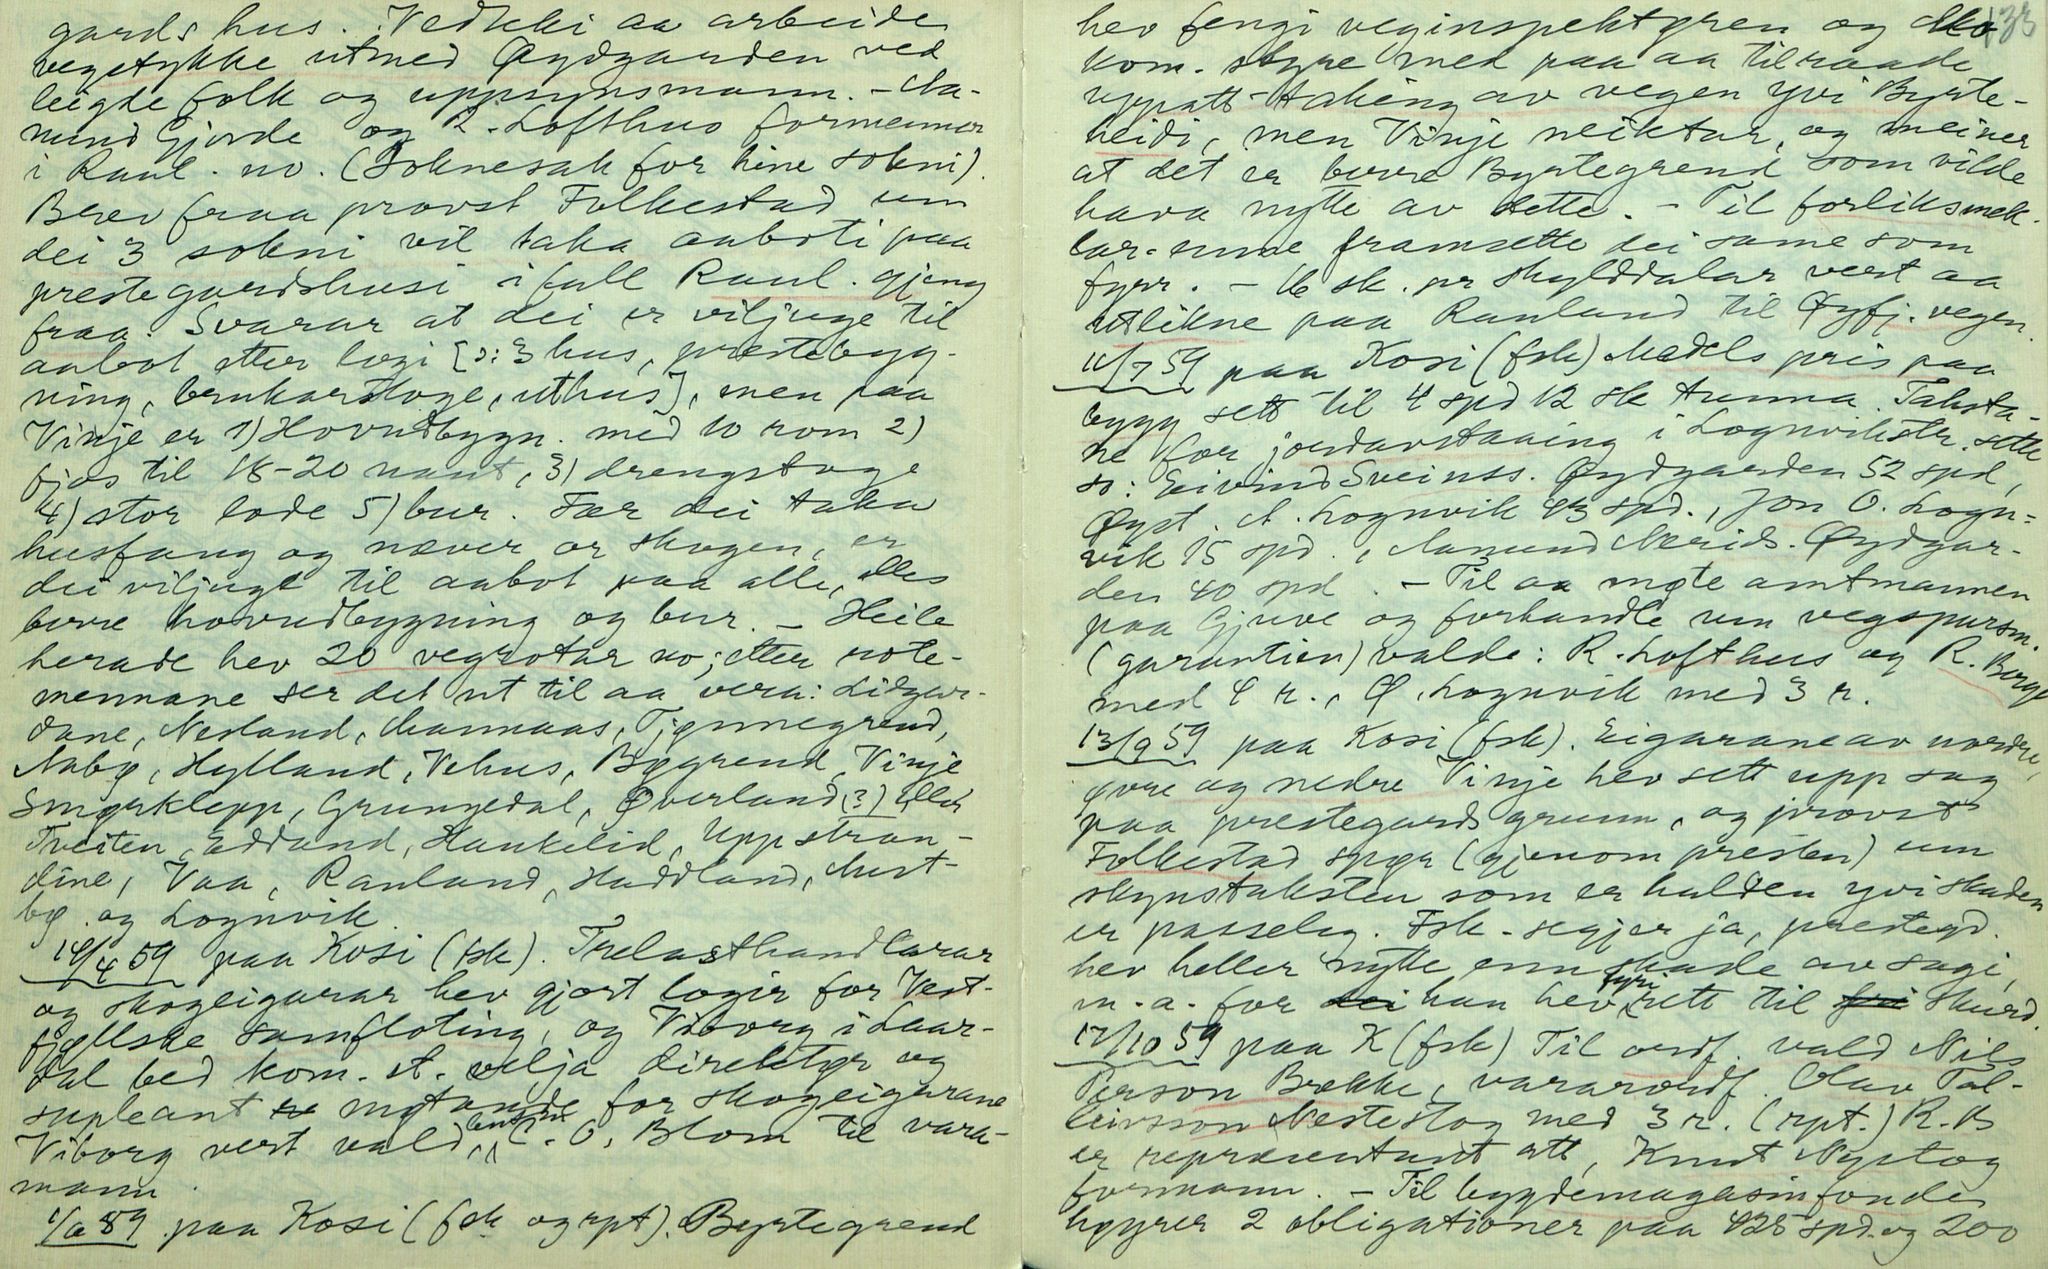 gards hus. Vedteki aa arbeide
vegstykke utmed Øydgarden ved
leigde folk og uppsynsmann. - Aa-
mund Gjorde og R. Lofthus formenner
i Raul. no. (Soknesak for hine sokni).
Brev fraa provst Folkestad um
dei 3 sokni vil taka aaboti paa
prestegardshusi i fall Raul. gjeng
fraa. Svarar at dei er viljuge til
aabot etter logi [ɔ: 3 hus, prestebyg-
ning, brukarstoge, uthus], men paa
Vinje er 1) Hovudbygn. med 10 rom 2)
fjos til 18-20 naut, 3) drengstoge
4) stor lode 5) bur. Fær dei taka
husfang og næver or skogen, er
dei viljuge til aabot paa alle, elles
berre hovudbygning og bur. - Heile
herade hev 20 vegrotar no; etter rote-
mennane ser det ut til aa vera: Lidgar-
dane, Nesland, Mannaas, Tjønnegrend,
Nabø, Hylland, Vehus, Bøgrend, Vinje
Smørklepp, Grungedal, Øverland (?) eller
Tveiten, Eddand, Haukelid, Uppstran-
dine, Vaa, Rauland, Haddland, Aust-
bø og Lognvik.
14/4 59 paa Kosi (fsk). Trelasthandlarar
og skogeigarar hev gjort logir for Vest-
fjellske samfloting, og Viborg i Laar-
dal bed kom. st. velja direktør og
supleant møtande for skogeigarane
Viborg vert vald, lensm. C. O. Blom til vara-
mann.
1/6 59 paa Kosi (fsk og rpt). Byrtegrend
hev fengi veginspektøren og Mo 133
kom. styre med paa aa tilraade
uppatt-taking av vegen yvi Byrte-
heidi, men Vinje neiktar, og meiner
at det er berre Byrtegrend som vilde
hava nytte av dette. - Til forliksmek-
lar-emne framsette dei same som
fyrr. - 16 sk. pr skylddalar vert aa
utlikne paa Rauland til Øyfj. vegen.
11/7 59 paa Kosi (fsk) Medels pris paa
bygg sett til 4 spd 12 sk tunna. Taksta-
ne for jordavstaaing i Lognvikstr. sette
so: Eivind Sveinss. Øydgarden 52 spd,
Øyst. A. Lognvik 93 spd., Jon O. Logn-
vik 15 spd., Aamund Nerids. Øydgar-
den 40 spd. - Til aa møte amtmannen
paa Gjuve og forhandle um vegspursm.
(garantien) valde: R. Lofthus og R. Berge
med 4 r., Ø. Lognvik med 3 r.
13/9 59 paa Kosi (fsk). Eigarane av nordre,
øvre og nedre Vinje hev sett upp sag
paa prestegards grunn, og provst
Folkestad spør (gjenom presten) um
skynstaksten som er halden yvi skaden
er passeleg. Fsk. segjer ja, prestegd.
hev heller nytte enn skade av sagi,
m. a. for dei han hev fyri rett til fri skurd.
17/10 59 paa K (fsk) Til ordf. vald Nils
Person Bække, varaordf. Olav Tal-
leivsson Nestestog med 3 r. (rpt.) R. B
er representant att, Knut Nystog
formann. - Til bygdemagasinfonde
høyrer 2 obligationer paa 425 spd. og 200